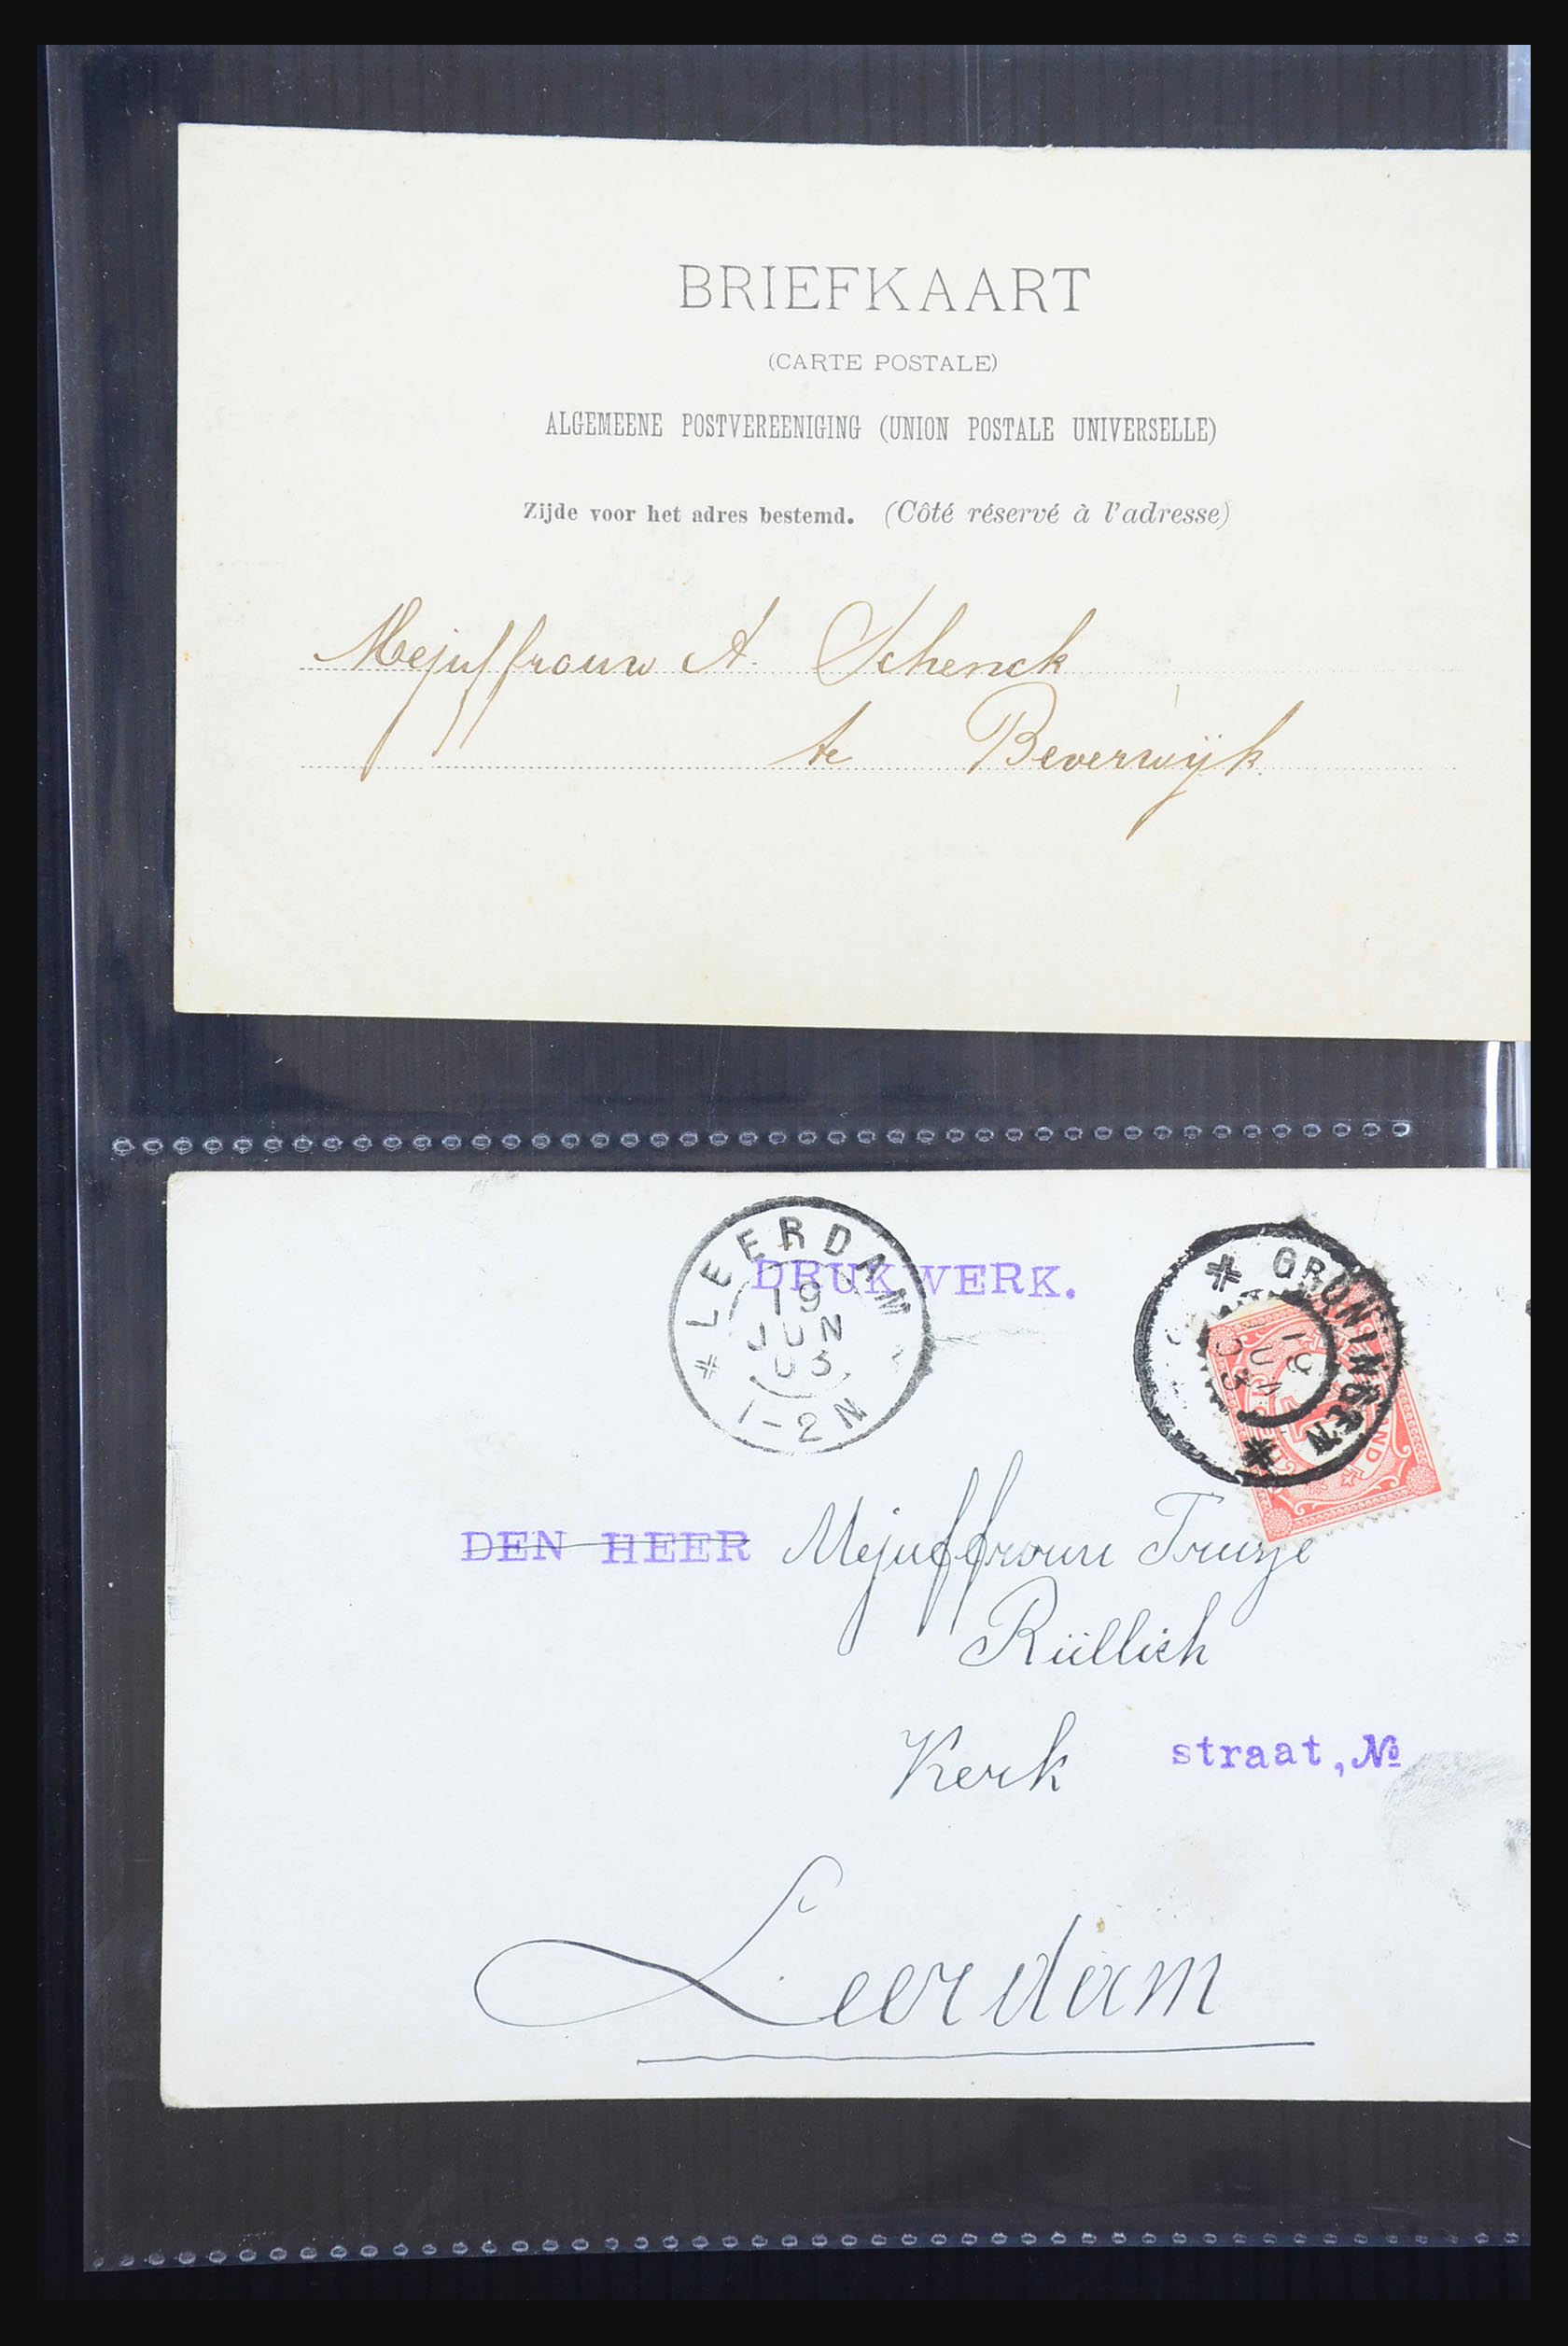 BRIEFKAART
(CARTE POSTALE)
ALGEMEENE POSTVEREENIGING (UNION POSTALE UNIVERSELLE)
Zijde voor het adres bestemd. (Côté réservé à l'adresse)
Mejuffrouw A. Schenck
te Beverwijk.
LEERDAM
19
JUN
03
1-2N
DRUKWERK.
GRONINGEN
19
JUN
03
DEN HEER Mejuffrouw Truusje
Rüllich
Kerk straat, №
Leerdam